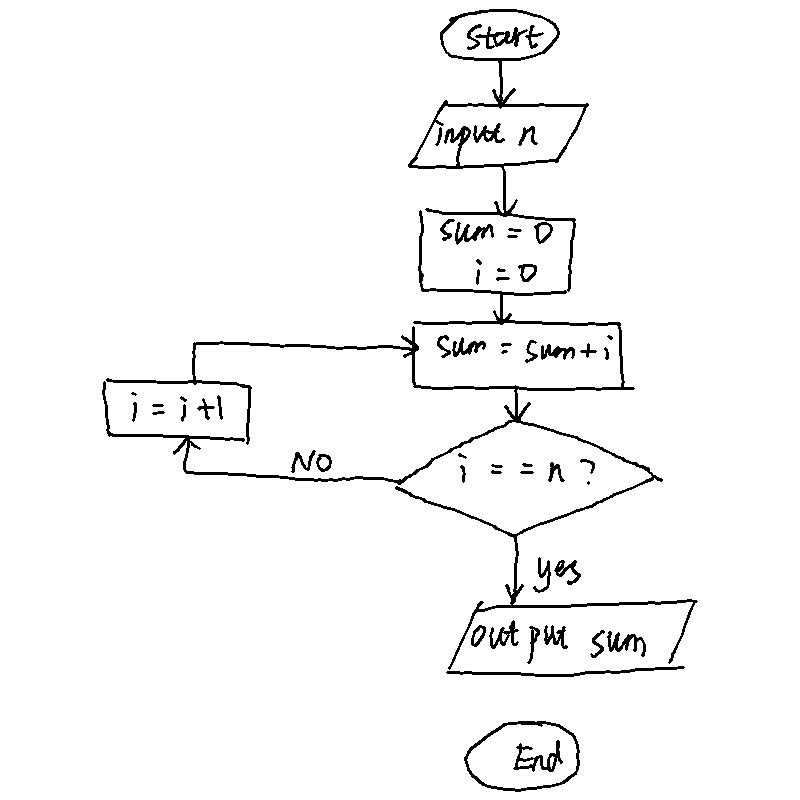 Start
input n
sum = 0
i = 0
sum = sum + i
i = i + 1
NO
i = = n ?
yes
output sum
End